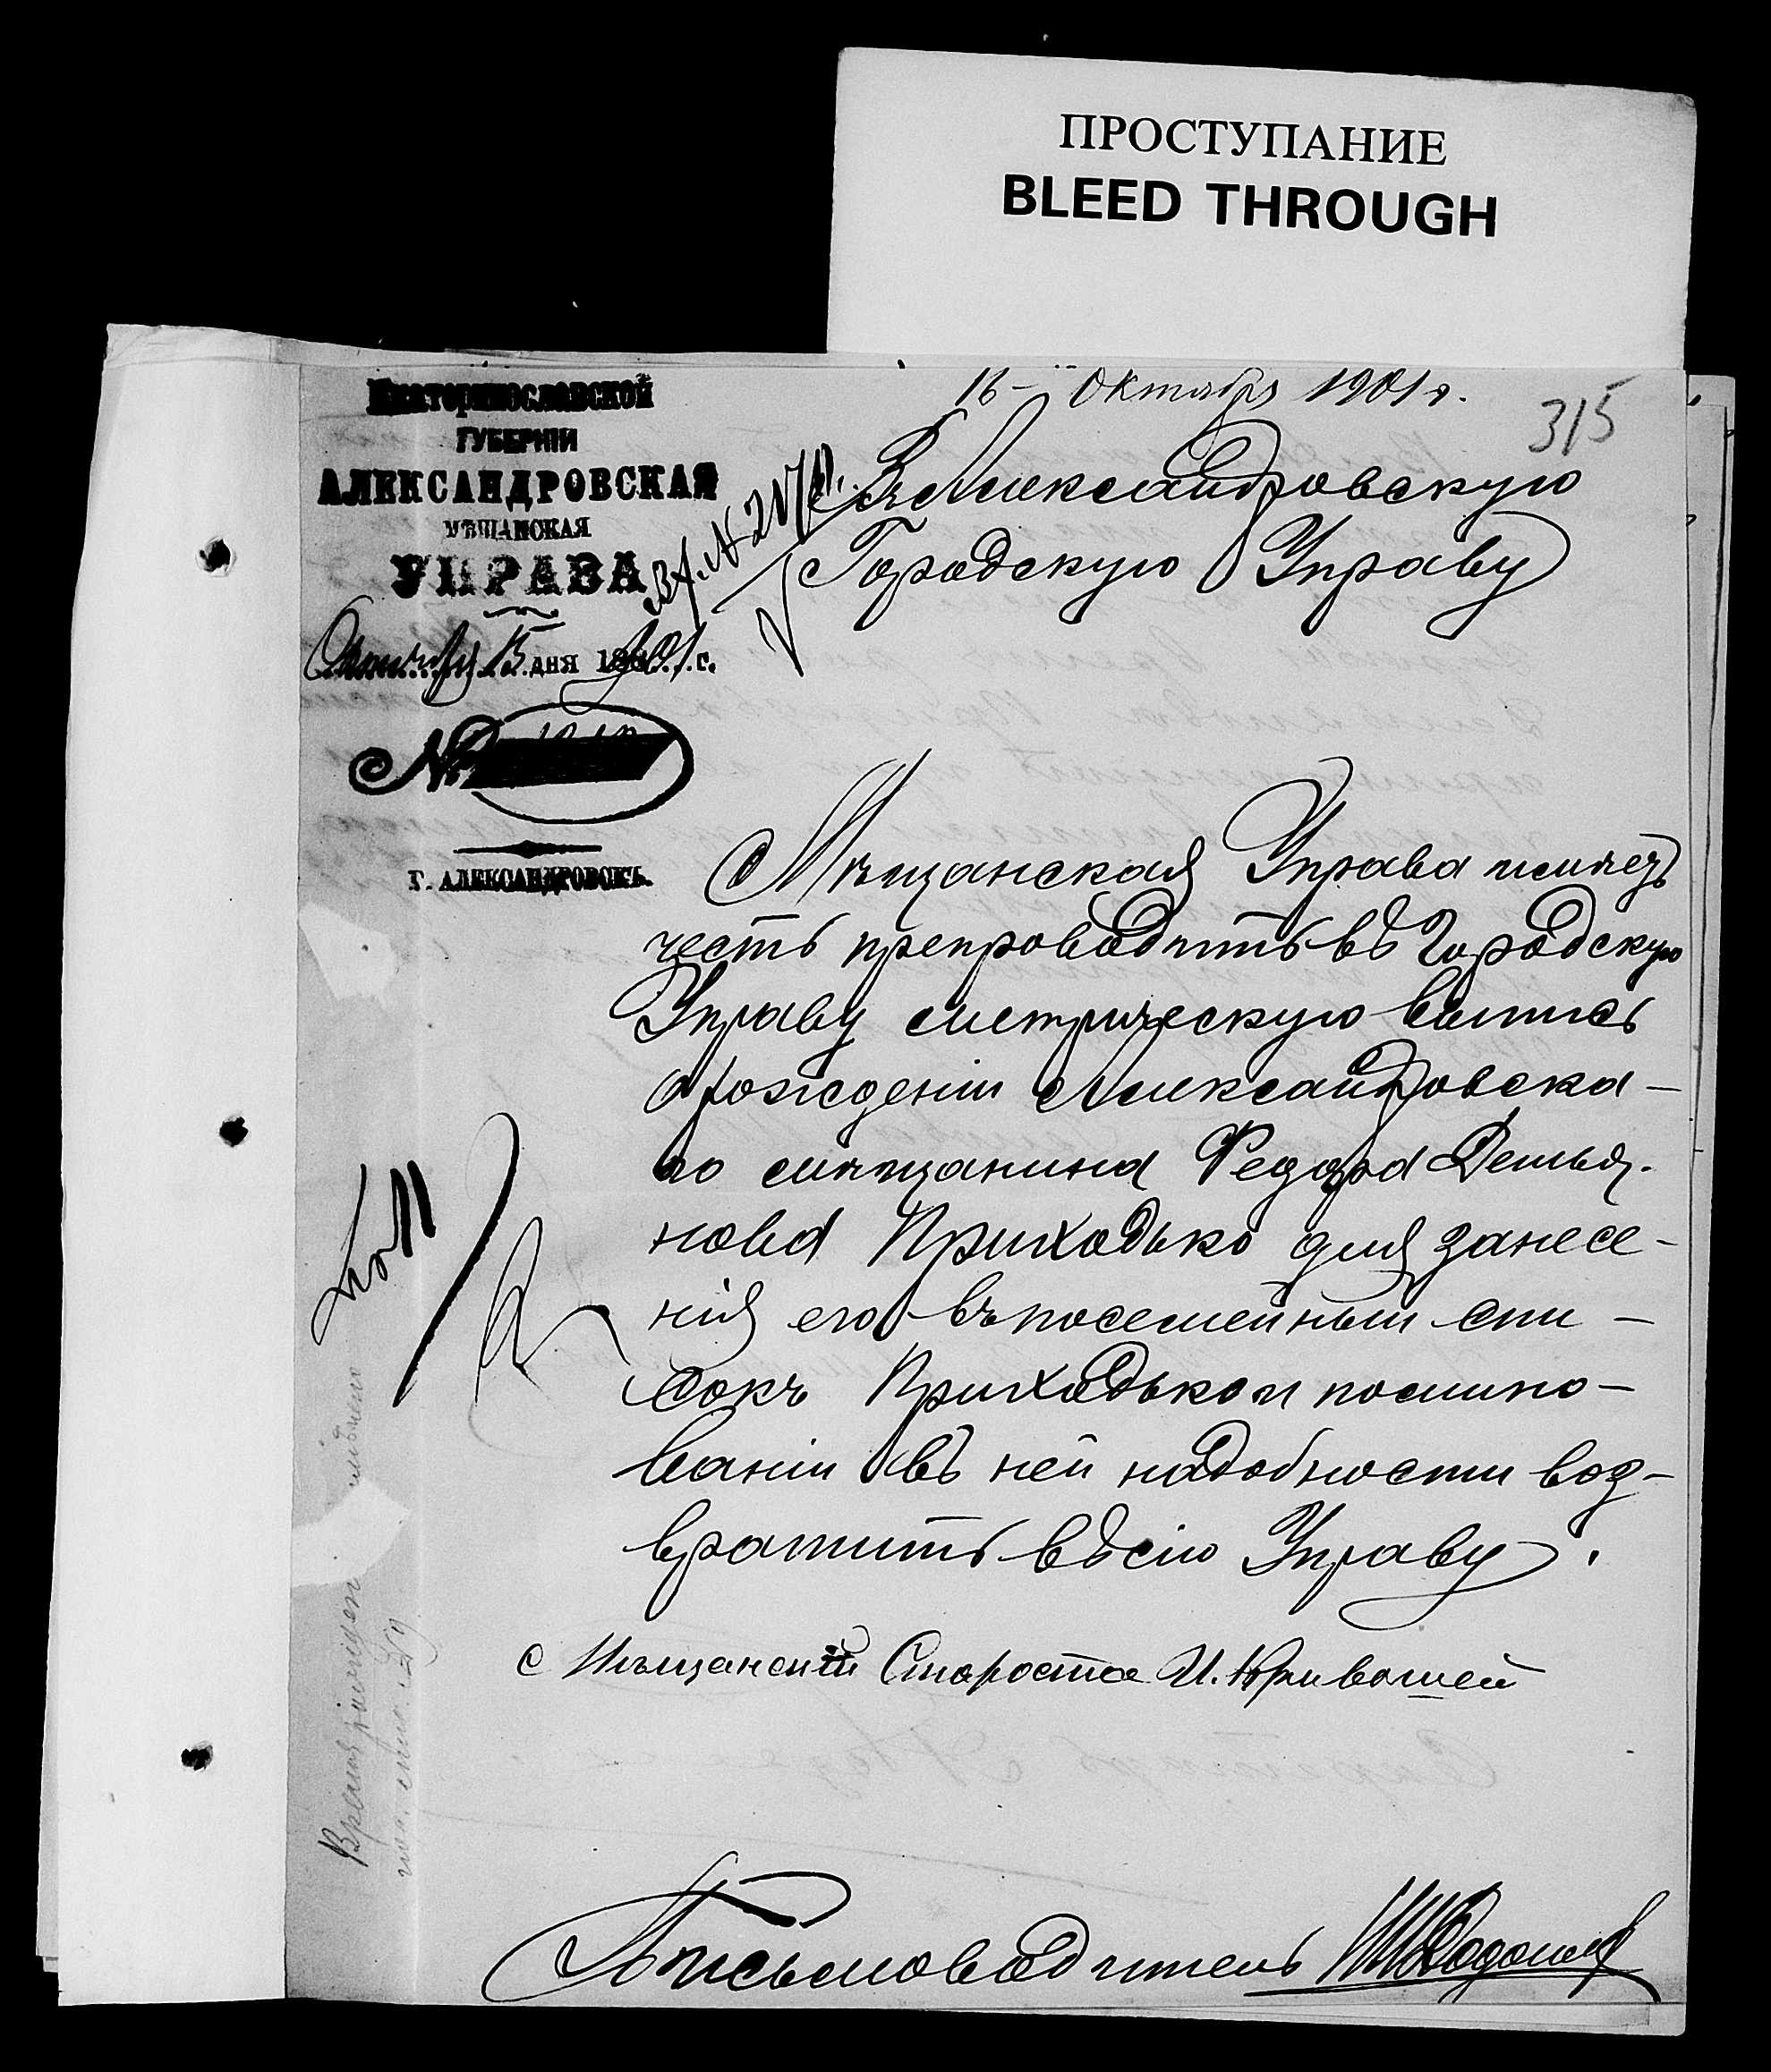 ПРОСТУПАНИЕ
BLEED THROUGH
16 – Октября 1901 г.
315
ЕКАТЕРИНОСЛАВСКОЙ
ГУБЕРНІИ
АЛЕКСАНДРОВСКАЯ
МѢЩАНСКАЯ
УПРАВА
Октября 15 дня 1901 г.
№
Г. АЛЕКСАНДРОВСКЪ.
Въ Александровскую
Городскую Управу
Мѣщанская Управа имѣетъ
честь препроводить въ Городскую
Управу метрическую выпись
о рожденіи Александровска-
го мѣщанина Федора Демья-
нова Приходько для занесе-
нія его въ посемейный спи-
сокъ Приходько и по мино-
ваніи въ ней надобности воз-
вратить въ сію Управу.
Мѣщанскій Староста И. Кривошей
Письмоводитель